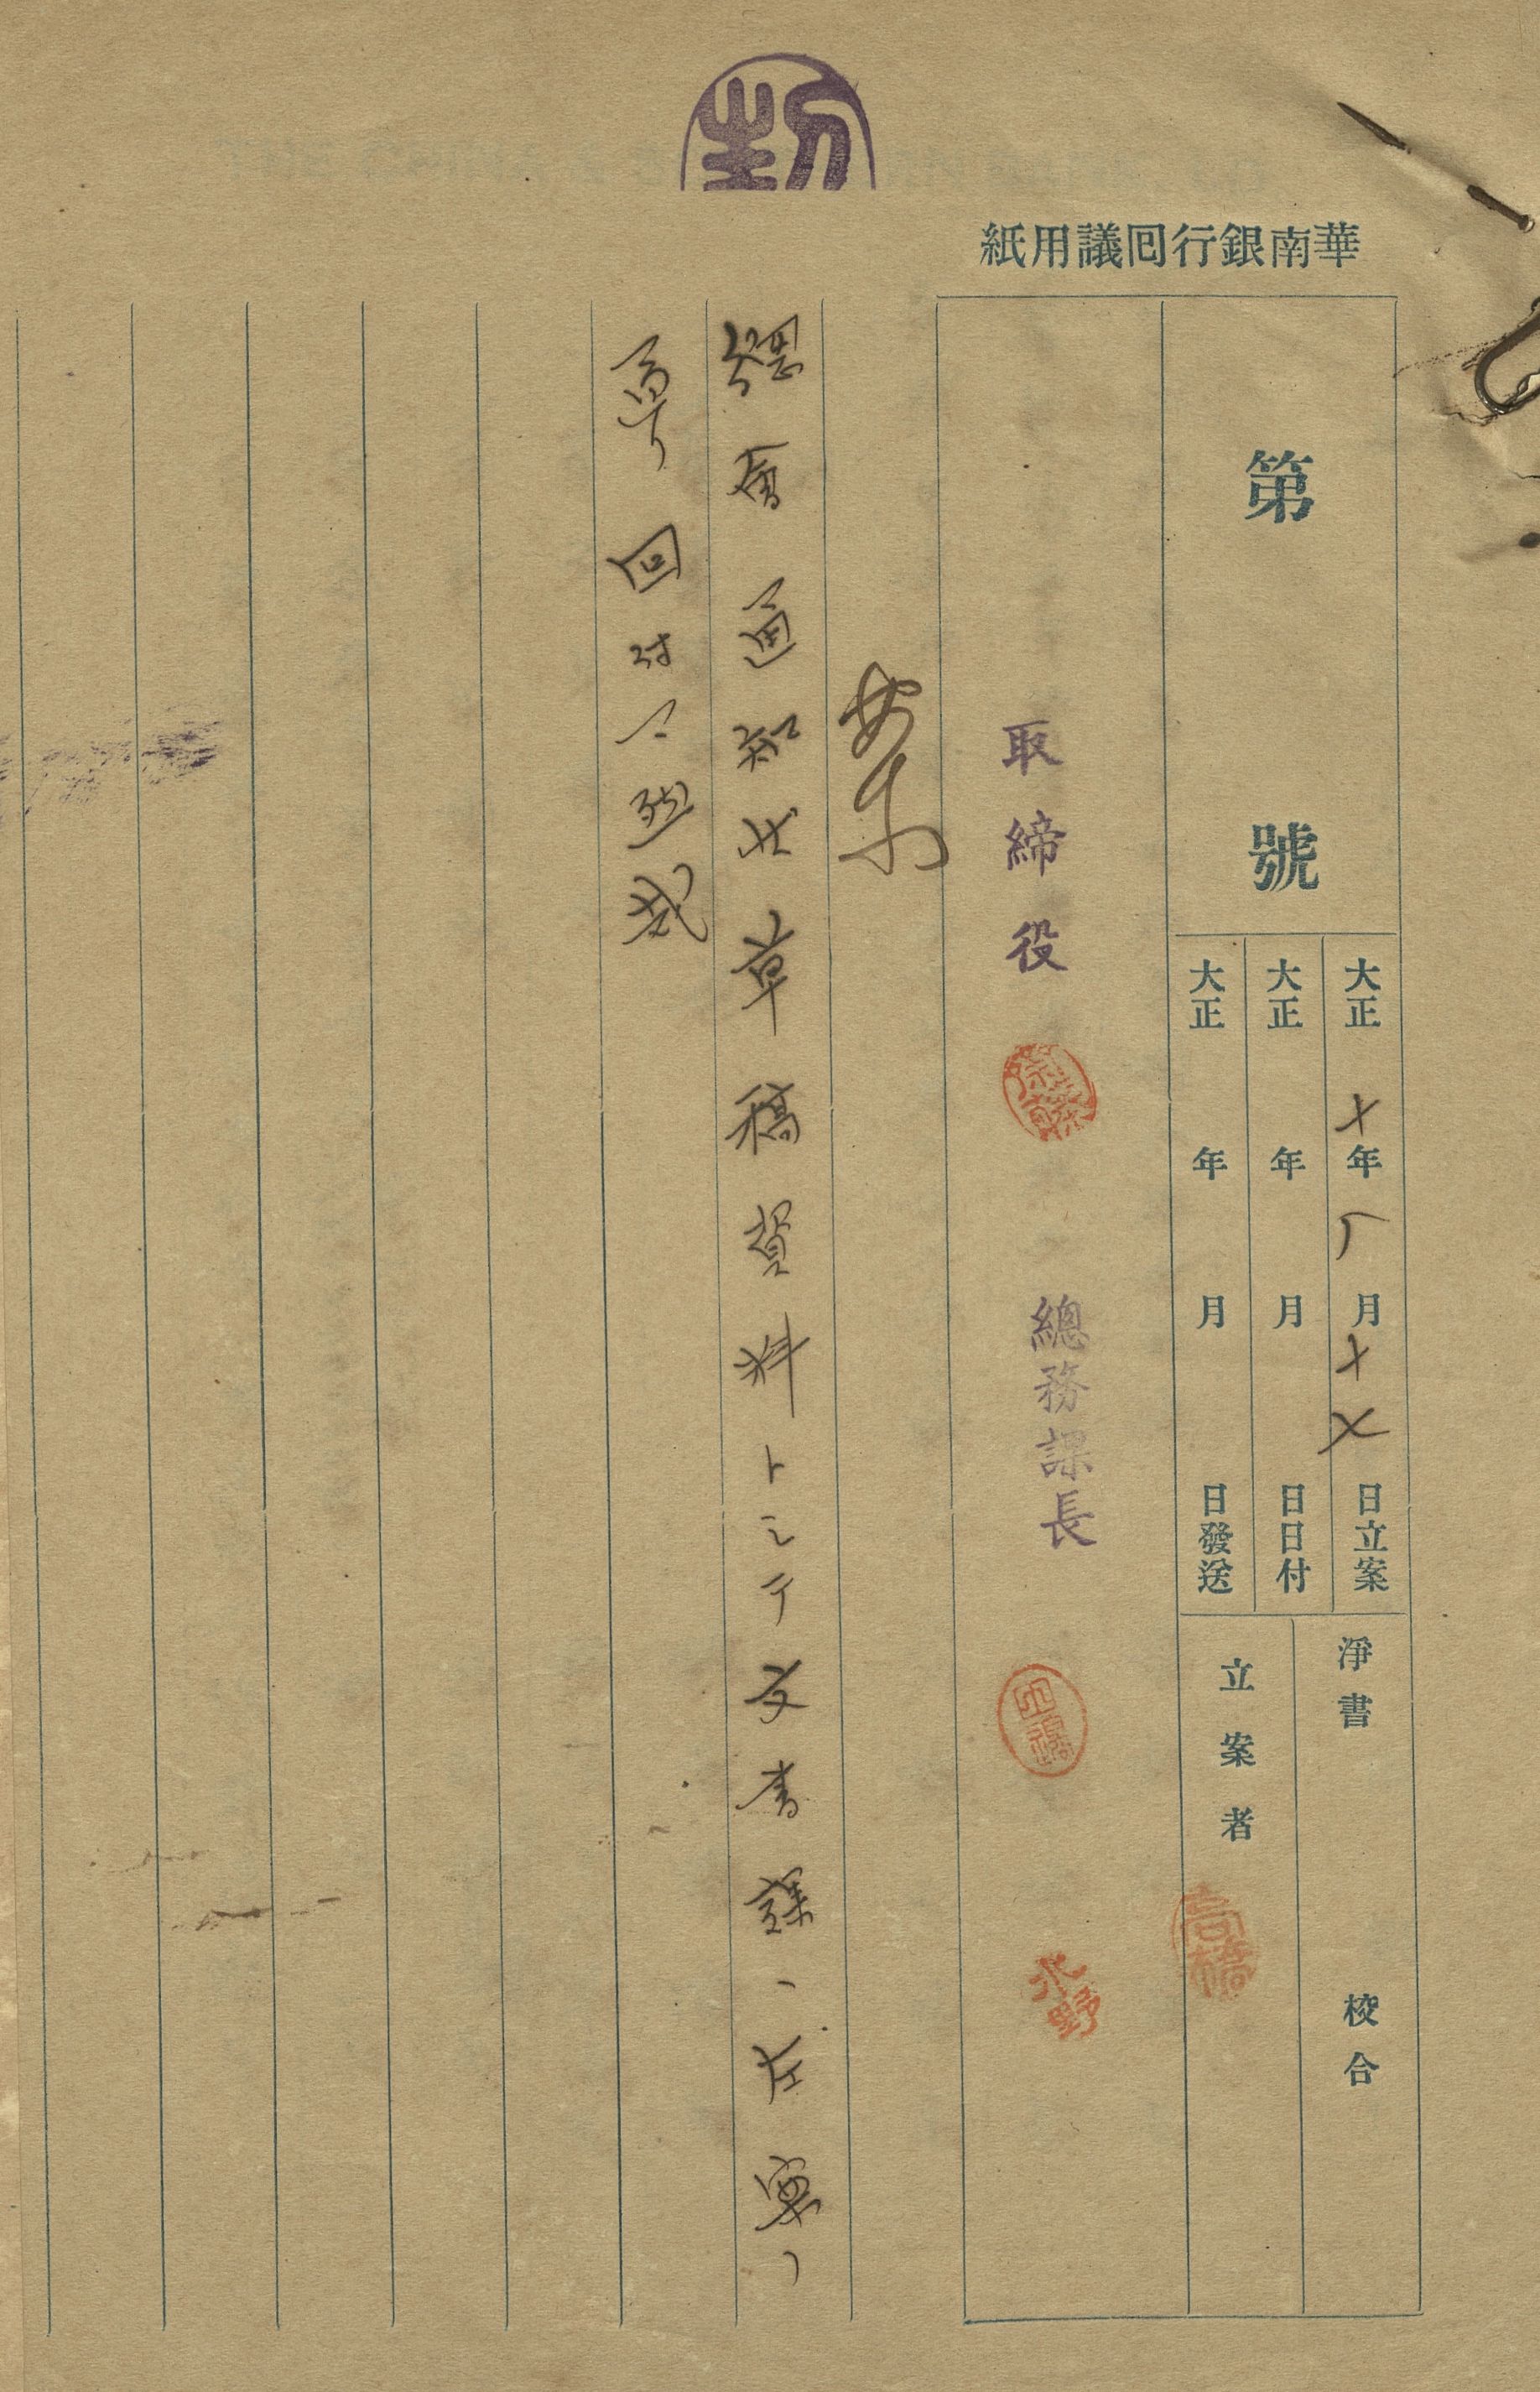 華南銀行囘議用紙
第 號
大正十年 月 日立案
大正 年 月 日日付
大正 年 月 日發送
淨書 校合
立案者 高橋
取締役 總務課長 水野
案
總會通知 草稿資料トシテ文書課ヘ左案ノ
寫回付 可然哉